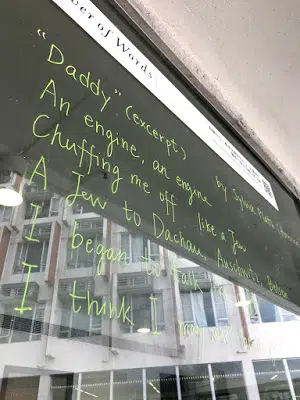 ber of Words
"Daddy" (excerpt) by Sylvia Plath
An engine, an engine
Chuffing me off like a Jew
A Jew to Dachau, Auschwitz, Belsen
I began to talk
I think I may